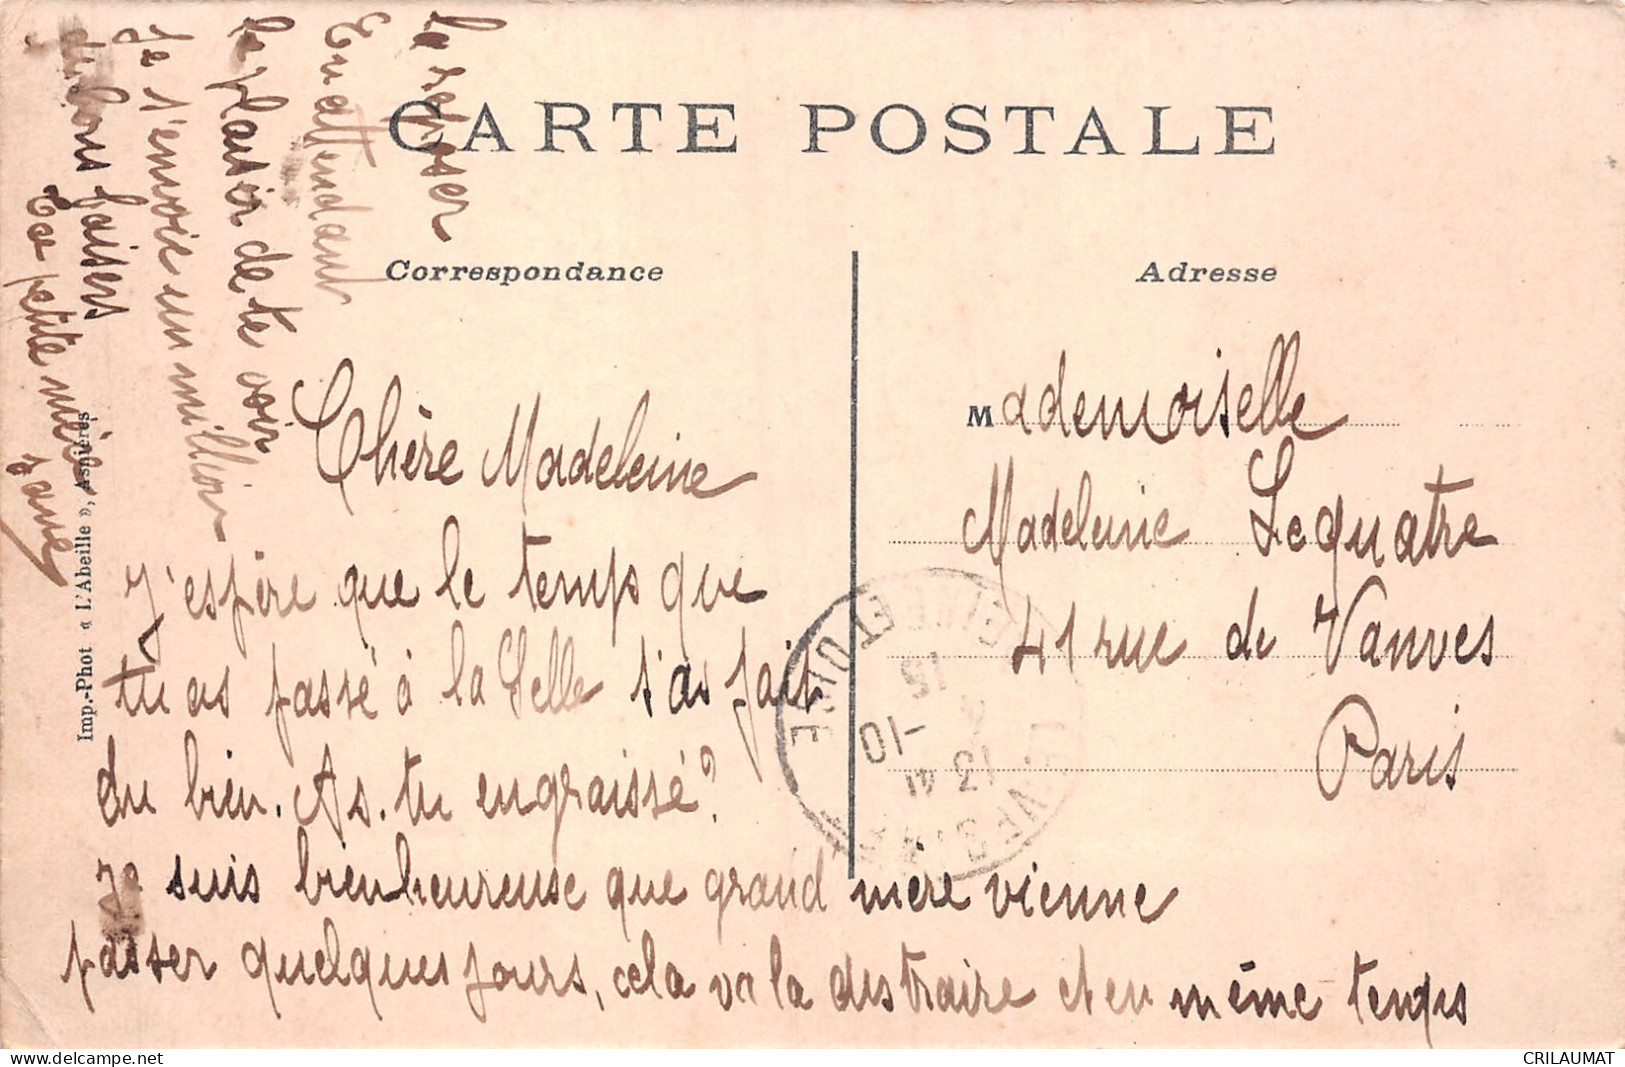 CARTE POSTALE
Correspondance
Adresse
Mademoiselle
Madeleine Lequatre
41 rue de Vanves
Paris
Chère Madeleine
J'espère que le temps que
tu as passé à la Selle t'as fait
du bien. As.tu engraissé?
Je suis bienheureuse que grand mère vienne
passer quelques jours, cela va la distraire et en même temps
la reposer
En attendant
le plaisir de te voir
Je t'envoie un million
de bons baisers
Ta petite mère
Jane
Imp.-Phot « L'Abeille », Asnières
SEINE ET OISE
13
10
15
CRILAUMAT